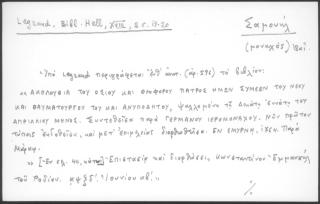 Legrand, Bibl. Hell, XVIII, 2 σ. 19-20
Σαμουήλ
(μοναχός) 18αι.
Ὑπὸ Legrand περιγράφεται (ἀρ. 596) τὸ βιβλίον:
« ΑΚΟΛΟΥΘΙΑ ΤΟΥ ΟΣΙΟΥ ΚΑΙ ΘΕΟΦΟΡΟΥ ΠΑΤΡΟΣ ΗΜΩΝ ΣΥΜΕΩΝ ΤΟΥ ΝΕΟΥ
ΚΑΙ ΘΑΥΜΑΤΟΥΡΓΟΥ ΤΟΥ ΚΑΙ ΑΝΥΠΟΔΗΤΟΥ, ψαλλομένη τῇ
ΑΠΡΙΛΛΙΟΥ ΜΗΝΟΣ. Συντεθεῖσα παρὰ ΓΕΡΜΑΝΟΥ ΙΕΡΟΜΟΝΑΧΟΥ. Νῦν πρῶτον
τύποις ἐκδοθεῖσα, καὶ μετ' ἐπιμελείας διορθωθεῖσα. ΕΝ ΣΜΥΡΝΗ, Παρὰ
Μάρκῳ.
» [-Ἐν σελ. 40, Ἐπιστασίᾳ καὶ διορθώσει, κωνσταντίνου Ἐμμανουὴλ
τοῦ Ῥοδίου. Ἰουνίου κβ´ »
%